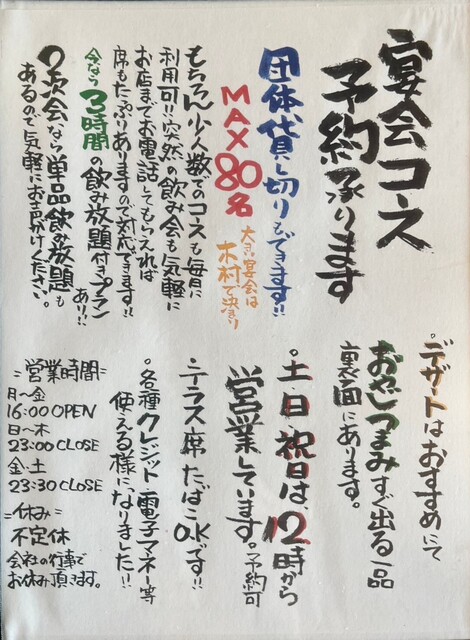 宴会コース
予約承ります
団体貸し切りもできます!!
MAX80名
大きい宴会は
木村で決まり
もちろん少人数でのコースも毎日に
利用可!!突然の飲み会も気軽に
お店までお電話してもらえれば
席もたっぷりありますので対応できます!!
今なら3時間の飲み放題付きプラン
あり!!
2次会なら単品飲み放題も
あるので気軽にお声がけください。
・デザートはおすすめにて
おやじつまみすぐ出る一品
裏面にあります。
・土、日、祝日は、12時から
営業しています。予約可
・テラス席たばこ
O.Kです!!
・各種クレジット、電子マネー等
使える様になりました!!
=営業時間=
月〜金
16:00 OPEN
日〜木
23:00 CLOSE
金・土
23:30 CLOSE
=休み=
不定休
会社の行事で
お休み頂きます。